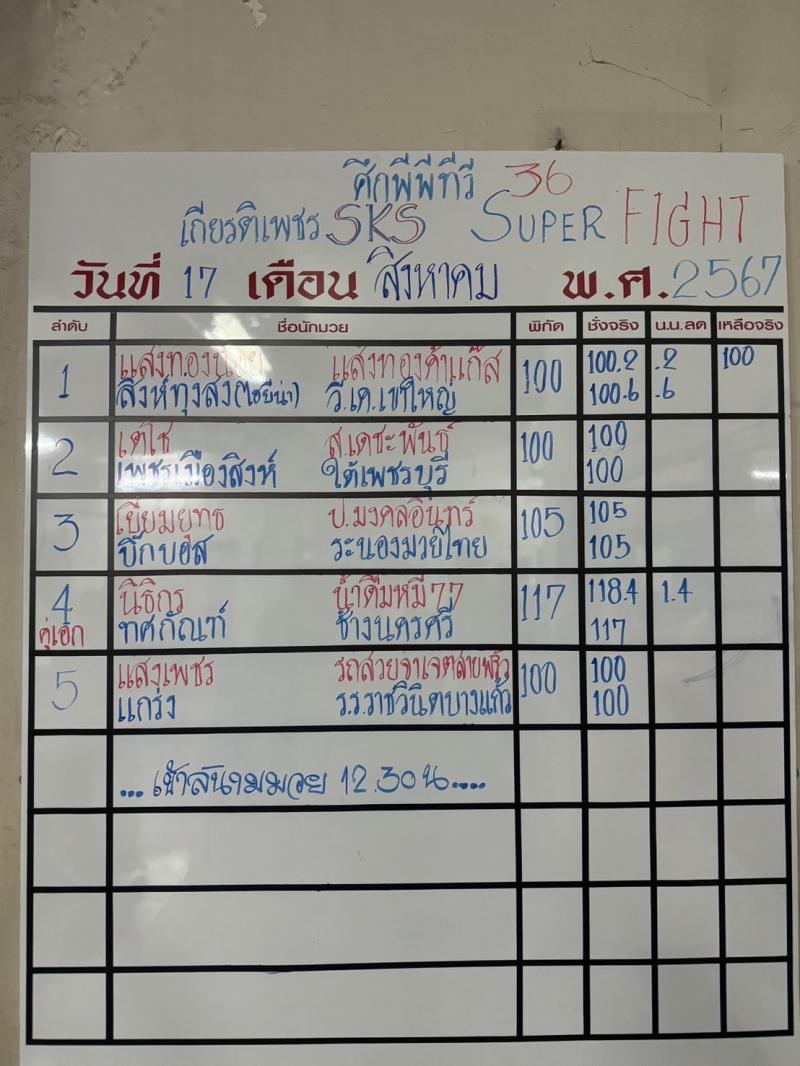 ศึกพีพีทีวี 36
เกียรติเพชร SKS SUPER FIGHT
วันที่ 17 เดือน สิงหาคม พ.ศ. 2567
ลำดับ ชื่อนักมวย พิกัด ชั่งจริง น.น.ลด เหลือจริง
แสงทองน้อย แสงทองค้าแก๊ส 100.2 .2 100
1 100
สิงห์ทุ่งสง (ไฮยีน่า) วี.เค.เขาใหญ่ 100.6 .6
เตโช ส.เดชะพันธ์ 100
2 100
เพชรเมืองสิงห์ ใต้เพชรบุรี 100
เยี่ยมยุทธ ป.มงคลอินทร์ 105
3 105
บิ๊กบอส ระนองมวยไทย 105
4 นิธิกร น้ำดื่มหมี77 117 118.4 1.4
คู่เอก ทศกัณฑ์ ช้างนครศรี 117
แสงเพชร 100
5 100
แกร่ง ร.ร.ราชวินิตบางแก้ว 100
... เข้าสนามมวย 12.30 น.....